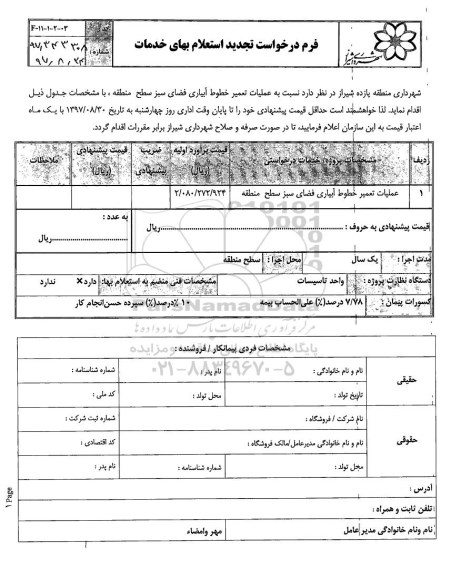 F-۰۱۱-۱-۲-۰۳
فرم درخواست تجدید استعلام بهای خدمات
شماره:
۹۷/۸/۲۴
شهرداری منطقه یازده شیراز در نظر دارد نسبت به عملیات تعمیر خطوط آبیاری فضای سبز سطح منطقه ، با مشخصات جدول ذیل
اقدام نماید. لذا خواهشمند است حداقل قیمت پیشنهادی خود را تا پایان وقت اداری روز چهارشنبه به تاریخ ۱۳۹۷/۰۸/۳۰ با یک ماه
اعتبار قیمت به این سازمان اعلام فرمایید، تا در صورت صرفه و صلاح شهرداری شیراز برابر مقررات اقدام گردد.
ردیف مشخصات پروژه/ خدمات درخواستی قیمت برآورد اولیه (ریال) ضریب پیشنهادی قیمت پیشنهادی (ریال) ملاحظات
۱ عملیات تعمیر خطوط آبیاری فضای سبز سطح منطقه ۲/۰۸۰/۲۷۲/۹۲۴
قیمت پیشنهادی به حروف : ......ریال به عدد : ......ریال
مدت اجرا : یک سال محل اجرا : سطح منطقه
دستگاه نظارت پروژه : واحد تاسیسات مشخصات فنی منضم به استعلام بها: دارد× ندارد
کسورات پیمان : ۷/۷۸ درصد(٪) علی‌الحساب بیمه ۱۰ درصد(٪) سپرده حسن‌انجام کار
ParsNamadData
مرکز فرآوری اطلاعات پارس نماد داده‌ها
۰۲۱-۸۸۳۴۹۶۷۰-۵
مشخصات فردی پیمانکار / فروشنده :
حقیقی
نام و نام خانوادگی : نام پدر : شماره شناسنامه :
تاریخ تولد : محل تولد : کد ملی :
حقوقی
نام شرکت / فروشگاه : شماره ثبت شرکت :
نام و نام خانوادگی مدیرعامل/مالک فروشگاه : کد اقتصادی :
محل تولد : شماره شناسنامه : نام پدر :
آدرس :
تلفن ثابت و همراه :
نام ونام خانوادگی مدیر عامل مهر وامضاء
۱ Page